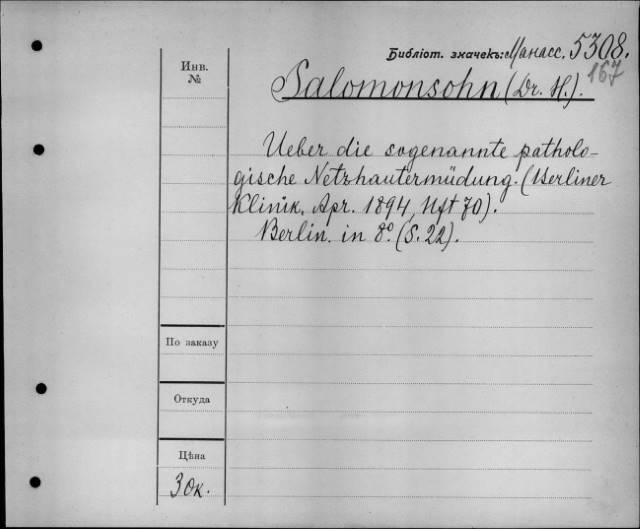 Библіот. значекъ: Манасс. 5308.
167
Инв.
№
Salomonsohn (Dr. H.).
Ueber die sogenannte patholo-
gische Netzhautermüdung. (Berliner
Klinik. Apr. 1894, Hft 70).
Berlin. in 8º. (S. 22).
По заказу
Откуда
Цѣна
30к.